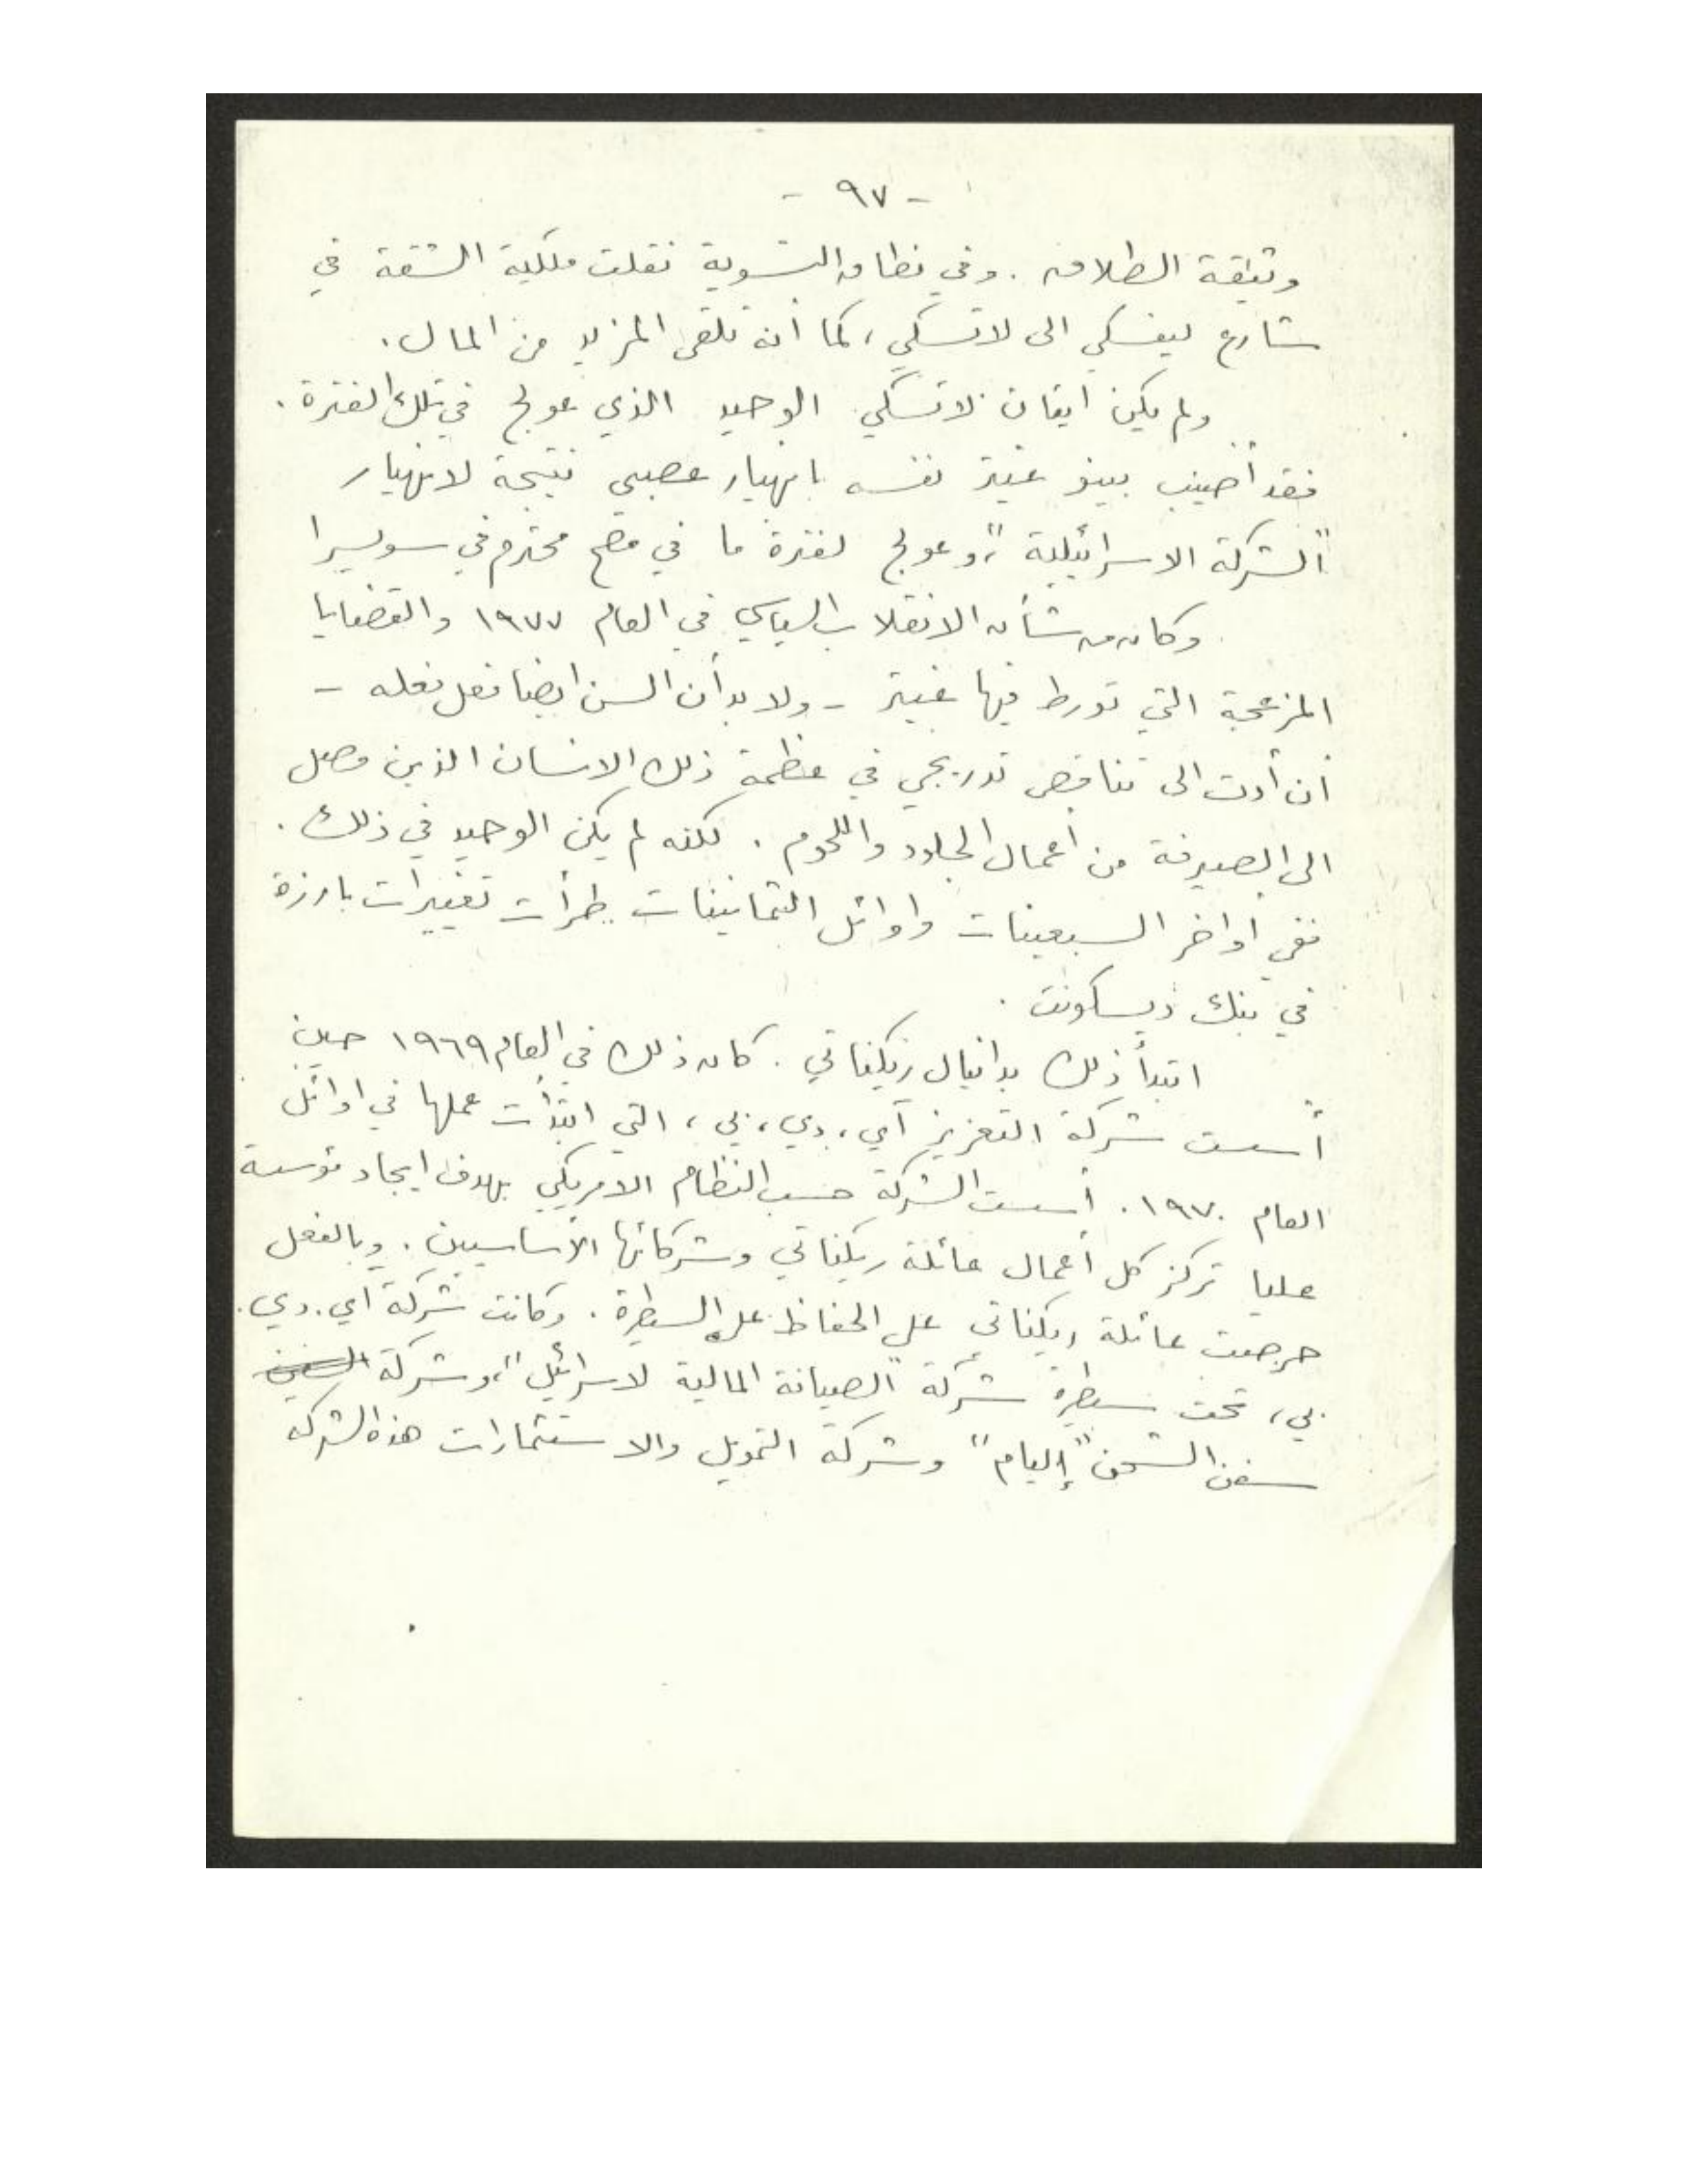 - ٩٧ -
وثيقة الطلاق . وفي نطاق التسوية نقلت ملكية الشقة في
شارع ليفسكي الى لاتسكي ، كما أنه تلقى المزيد من المال .
ولم يكن ايفان لاتسكي الوحيد الذي عولج في تلك الفترة .
فقد أصيب بينو غيتر نفسه بانهيار عصبي نتيجة لانهيار
"الشركة الاسرائيلية" ، وعولج لفترة ما في مصح محترم في سويسرا
وكان من شأن الانقلاب السياسي في العام ١٩٧٧ والقضايا
المزعجة التي تورط فيها غيتر - ولا بد أن السن ايضا فعل فعله -
أن أدت الى تناقص تدريجي في عظمة ذلك الانسان الذي وصل
الى الصيرفة من أعمال الجلود واللحوم . لكنه لم يكن الوحيد في ذلك .
ففي اواخر السبعينات واوائل الثمانينات طرأت تغييرات بارزة
في بنك ديسكونت .
ابتدأ ذلك بدانيال ريكناتي . كان ذلك في العام ١٩٦٩ حين
أسست شركة التعزيز آي ، دي ، بي ، التي ابتدأت عملها في اوائل
العام ١٩٧٠ . أسست الشركة حسب النظام الامريكي بهدف ايجاد مؤسسة
عليا تركز كل أعمال عائلة ريكناتي وشركائها الأساسيين . وبالفعل
حرصت عائلة ريكناتي على الحفاظ على السيطرة . وكانت شركة اي . دي .
بي ، تحت سيطرة شركة "الصيانة المالية لاسرائيل" ، وشركة
سفن الشحن "إليام" وشركة التمويل والاستثمارات هذه الشركة